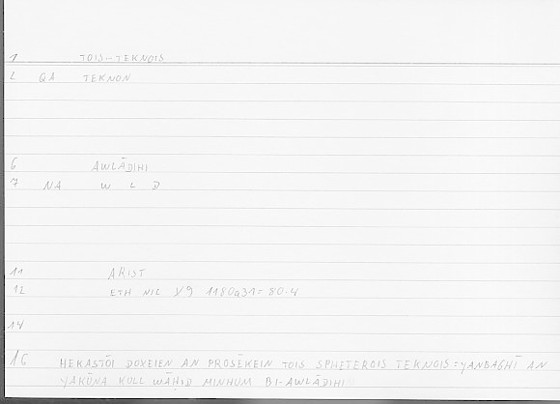 1 TOIS--TEKNOIS
2 QA TEKNON
6 AWLĀDIHI
7 NA W L D
11 ARIST
12 ETH NIC
14
16 HEKASTŌI DOXEIEN AN PROSĒKEIN TOIS SPHETEROIS TEKNOIS = YANBAGHĪ AN
YAKŪNA KULL WĀḤID MINHUM BI-AWLĀDIHI